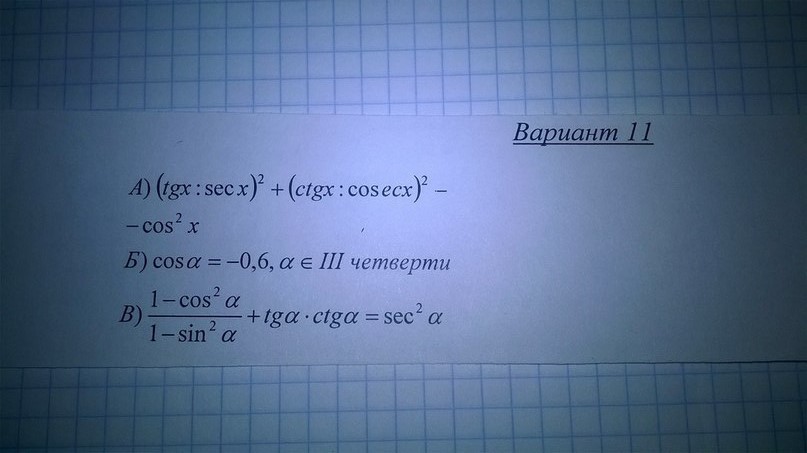 Вариант 11
А) (tgx : sec x)² + (ctgx : cosecx)² –
– cos² x
Б) cos α = –0,6, α ∈ III четверти
В) (1 – cos² α)/(1 – sin² α) + tgα · ctgα = sec² α